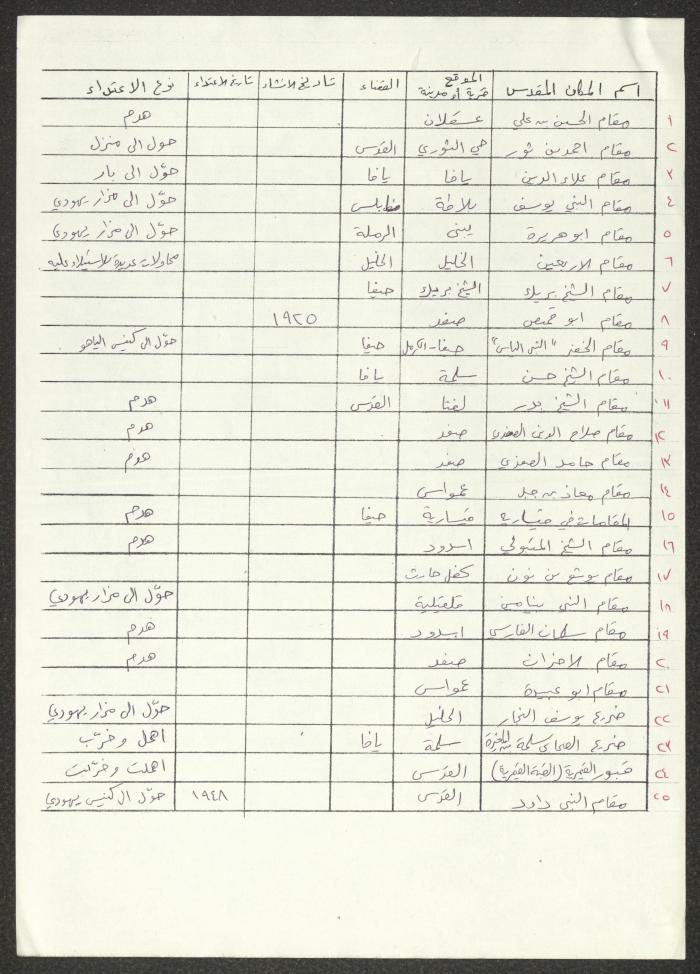 اسم المكان المقدس الموقع قرية أو مدينة القضاء تاريخ الانشاء تاريخ الاعتداء نوع الاعتداء
١ مقام الحسين بن علي عسقلان هدم
٢ مقام احمد بن ثور حي الثوري القدس حول الى منزل
٣ مقام علاء الدين يافا يافا حوّل الى بار
٤ مقام النبي يوسف بلاطة نابلس حوّل الى مزار يهودي
٥ مقام ابو هريرة يبنى الرملة حوّل الى مزار يهودي
٦ مقام الاربعين الخليل الخليل محاولات عديدة للاستيلاء عليه
٧ مقام الشيخ بريك الشيخ بريك حيفا
٨ مقام ابو قميص صفد ١٩٢٥
٩ مقام الخضر "النبي الياس" حيفا - الكرمل حيفا حوّل الى كنيس الياهو
١٠ مقام الشيخ حسن سلمة يافا
١١ مقام الشيخ بدر لفتا القدس هدم
١٢ مقام صلاح الدين الصفدي صفد هدم
١٣ مقام حامد الصفدي صفد هدم
١٤ مقام معاذ بن جبل عمواس
١٥ المقامات في قيسارية قيسارية حيفا هدم
١٦ مقام الشيخ المتبولي اسدود هدم
١٧ مقام يوشع بن نون كفل حارث
١٨ مقام النبي بنيامين قلقيلية حوّل الى مزار يهودي
١٩ مقام سلمان الفارسي اسدود هدم
٢٠ مقام الاحزان صفد هدم
٢١ مقام ابو عبيدة عمواس
٢٢ ضريح يوسف النجار الخليل حوّل الى مزار يهودي
٢٣ ضريح الصحابي سلمة سلمة يافا اهمل وخرّب
٢٤ قبور القيمرية (القبة القيمرية) القدس اهملت وخرّبت
٢٥ مقام النبي داود القدس ١٩٤٨ حوّل الى كنيس يهودي